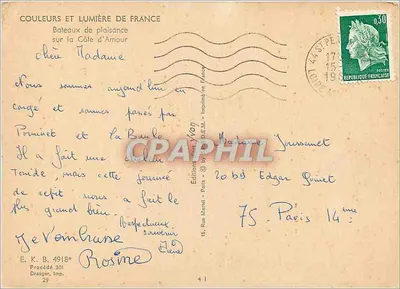 COULEURS ET LUMIÈRE DE FRANCE
Bateaux de plaisance
sur la Côte d'Amour
Chère Madame
Nous sommes aujourd'hui en
congé et sommes passés par
Pornichet et La Baule
Il a fait une chaleur
Torride, mais cette journée
de répit nous a fait le
plus grand bien.
Respectueux
souvenir
Je Vous embrasse
Rosine
E. K. B. 4918
Procédé 301
Draeger, Imp.
29
Éditions Yvon
15, Rue Martel - Paris
Imprimé en France
41
Madame
20 bd Edgar Quinet
75. Paris 14ème
44 ST
17
15
19
LOIRE
0,30
REPUBLIQUE FRANÇAISE
CPARHIL